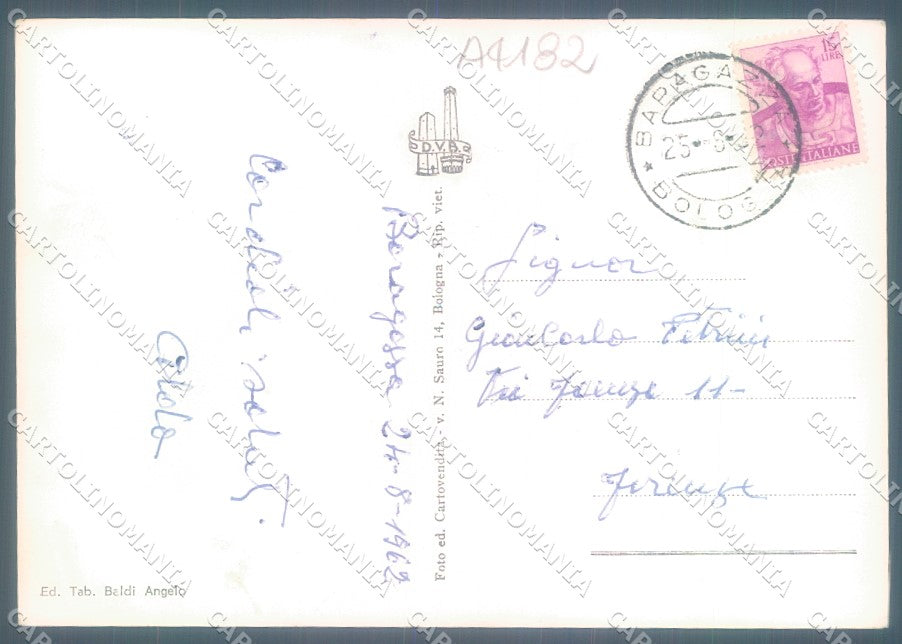 A4182
15
LIRE
POSTE ITALIANE
BARAGAZZA
25 8
BOLOG
D.V.B.
Cordiali saluti.
Baragazza 24-8-1962
Foto ed. Cartovendita, v. N. Sauro 14, Bologna - Rip. viet.
Signor
Giancarlo Petrini
Via Firenze 11-
Firenze
Ed. Tab. Baldi Angelo
CARTOLINOMANIA